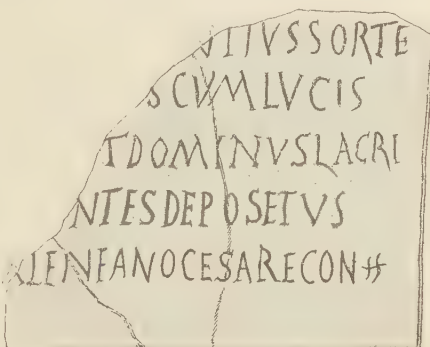 TIVSSORTE
SCVMLVCIS
TDOMINVSLACRI
NTESDEPOSETVS
LENFANOCESARECON